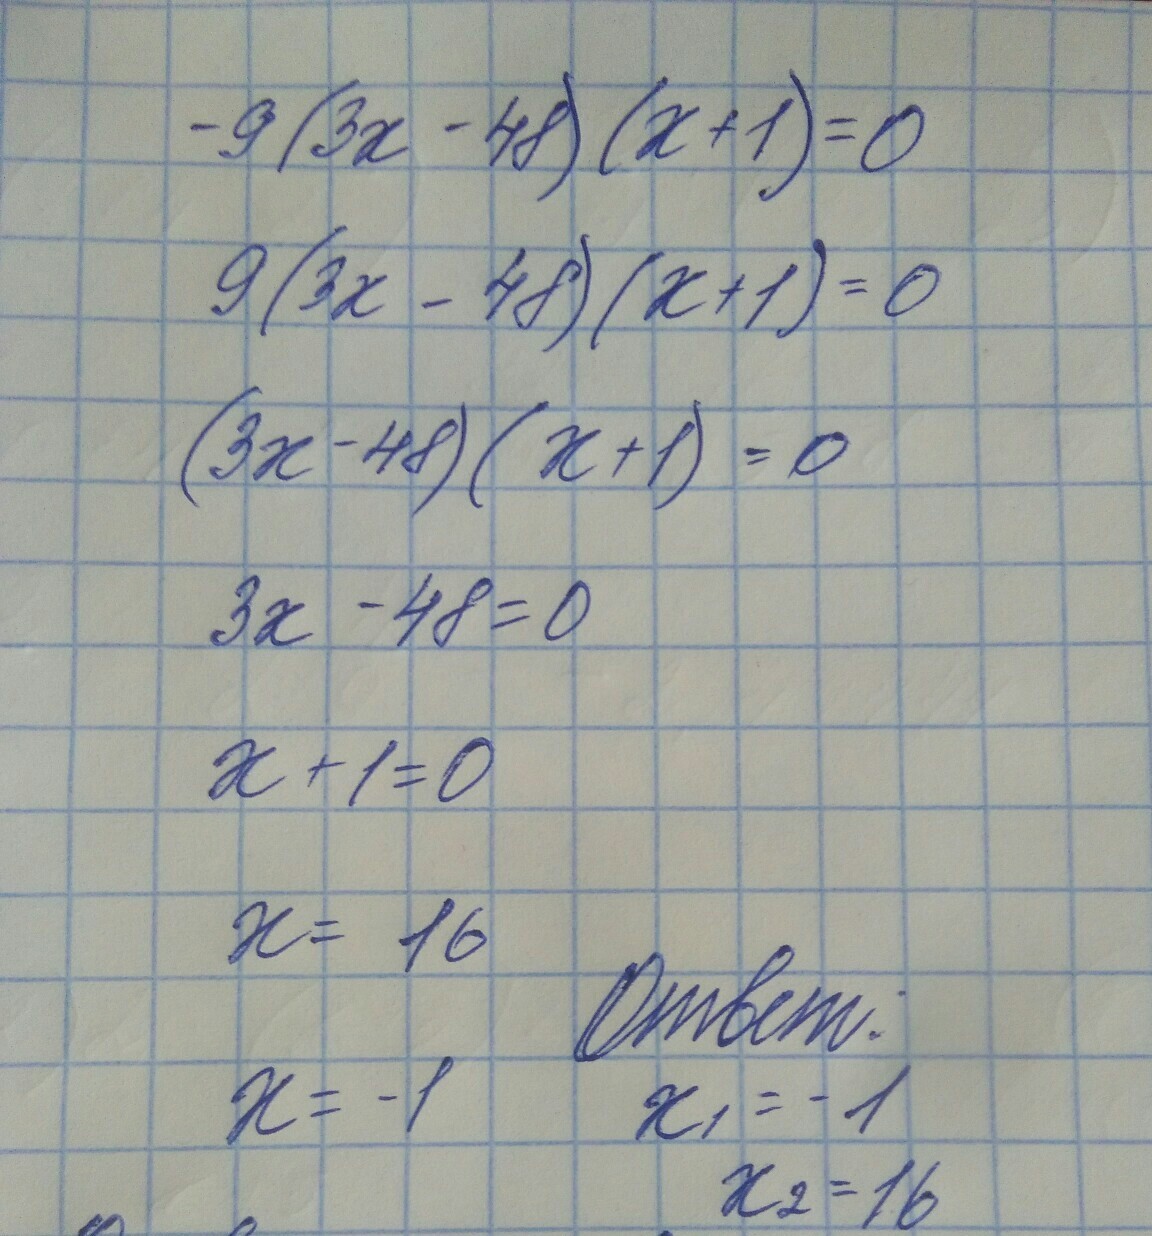 -9(3x-48)(x+1)=0
9(3x-48)(x+1)=0
(3x-48)(x+1)=0
3x-48=0
x+1=0
x=16
x=-1
Ответ:
x₁=-1
x₂=16